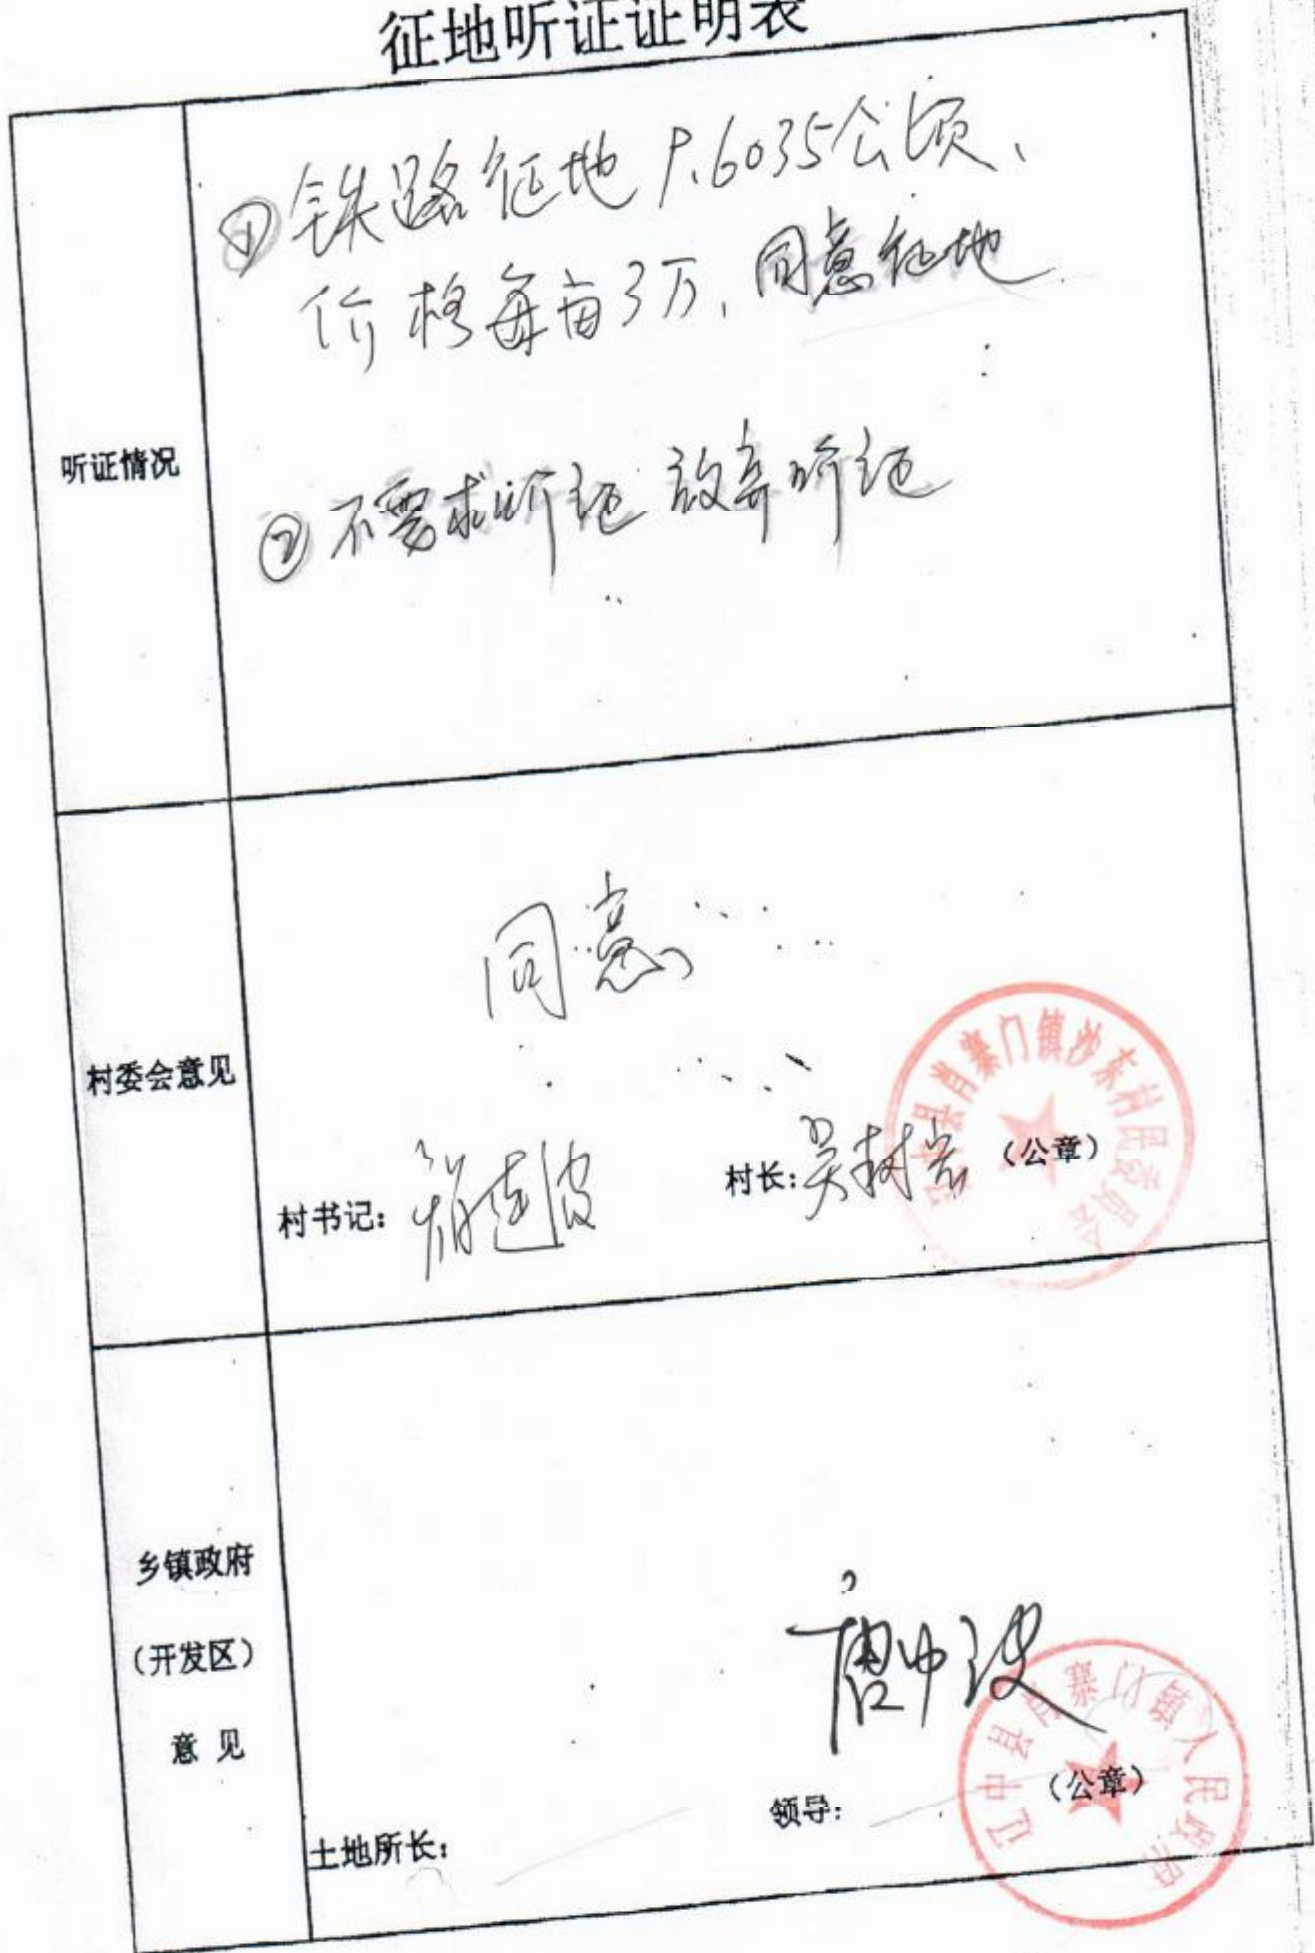 征地听证证明表
听证情况
①铁路征地 .6035公顷、
价格每亩3万, 同意征地
②不要求听证 放弃听证
村委会意见
同意
村书记:
村长:吴树
(公章)
辽中县肖寨门镇沙东村民委员会
乡镇政府
(开发区)
意 见
唐中
土地所长:
领导:
(公章)
辽中县肖寨门镇人民政府